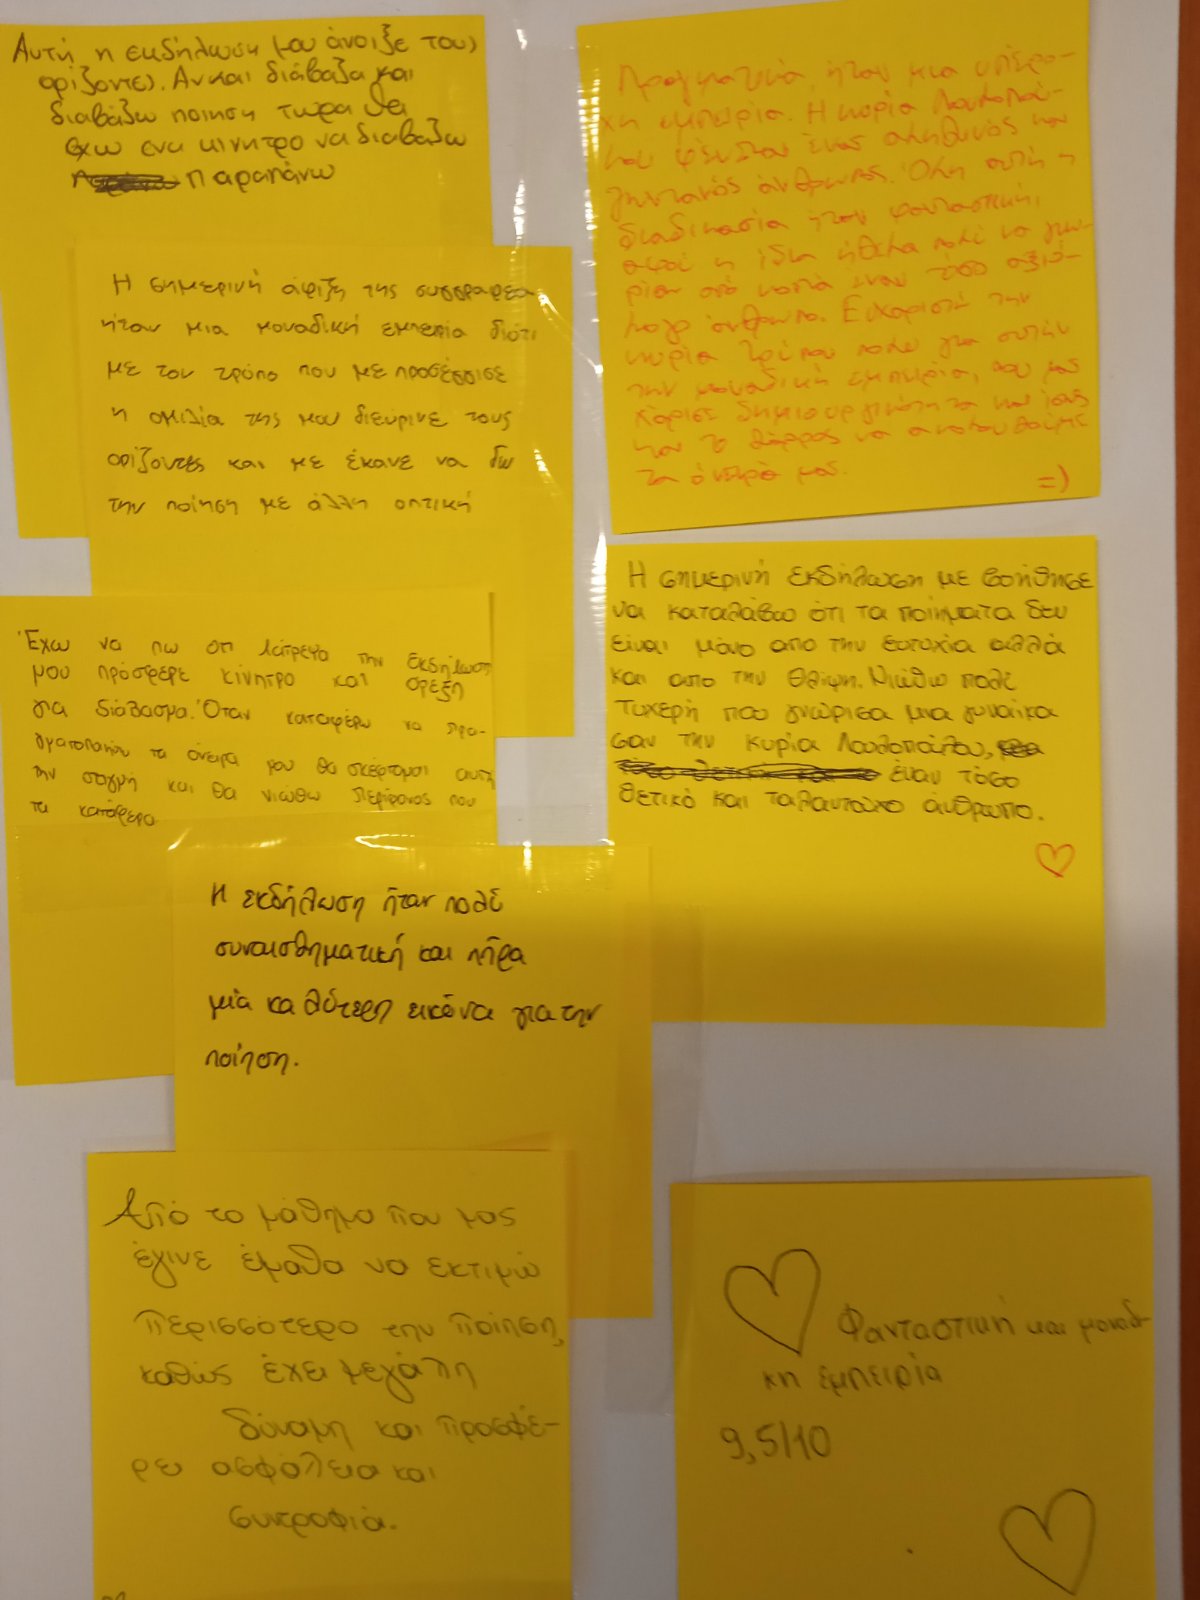 Αυτή η εκδήλωση μου άνοιξε τους
ορίζοντες. Αν και διάβαζα και
διαβάζω ποιηση τωρα θα
εχω ενα κινητρο να διαβαζω
παραπάνω
Η σημερινή άφιξη της συγγραφέα
ήταν μια μοναδική εμπειρία διότι
με τον τρόπο που με προσέγγισε
η ομιλία της μου διεύρινε τους
ορίζοντες και με έκανε να δω
την ποίηση με άλλη οπτική
Έχω να πω οτι λάτρεψα την εκδήλωση
μου πρόσφερε κίνητρο και όρεξη
για διάβασμα. Όταν καταφέρω να πρα-
γματοποιήσω τα όνειρα μου θα σκέφτομαι αυτή
την στιγμή και θα νιώθω περίφανος που
τα κατάφερα
Η εκδήλωση ήταν πολύ
συναισθηματική και πήρα
μία καλύτερη εικόνα για την
ποίηση.
Από το μάθημα που μας
έγινε έμαθα να εκτιμώ
περισσότερο την ποίηση,
καθώς έχει μεγάλη
δύναμη και προσφέ-
ρει ασφάλεια και
συντροφιά.
Πραγματικά, ήταν μια υπέρο-
χη εμπειρία. Η κυρία Λουλοπού-
λου φαίνεται ένας αληθινός και
ζωντανός άνθρωπος. Όλη αυτή η
διαδικασία ήταν φανταστική,
αφού η ίδια ήθελα πολύ να γνω-
ρίσω από κοντά έναν τόσο αξιό-
λογο άνθρωπο. Ευχαριστώ την
κυρία πολύ για αυτήν
την μοναδική εμπειρία, που μας
χάρισε δημιουργικότητα και ίσως
και το θάρρος να ακολουθούμε
τα όνειρά μας.
=)
Η σημερινή εκδήλωση με βοήθησε
να καταλάβω ότι τα ποιήματα δεν
είναι μόνο απο την ευτυχία αλλά
και απο την θλίψη. Νιώθω πολύ
τυχερή που γνώρισα μια γυναίκα
σαν την κυρία Λουλοπούλου,
έναν τόσο
θετικό και ταλαντούχο άνθρωπο.
Φανταστική και μοναδι-
κη εμπειρία
9,5/10